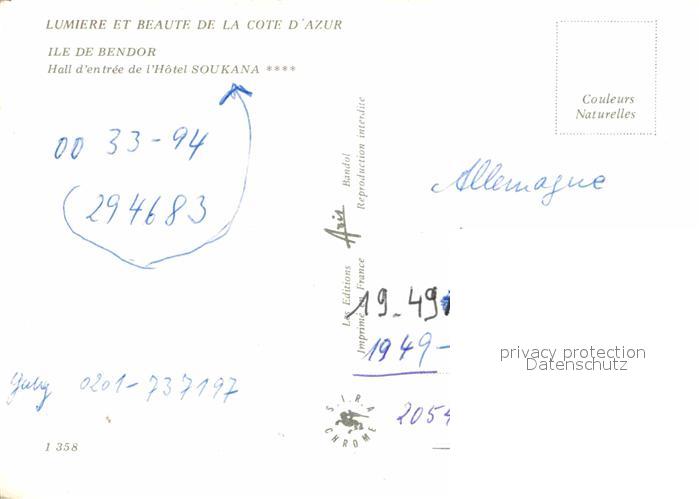 LUMIERE ET BEAUTE DE LA COTE D'AZUR
ILE DE BENDOR
Hall d'entrée de l'Hôtel SOUKANA ****
00 33-94
(294683
0201-737197
1 358
Les Editions Aris Bandol
Imprimé en France Reproduction interdite
S.I.R.A.
CHROME
Couleurs
Naturelles
Allemagne
19-49
1949-
2054
privacy protection
Datenschutz